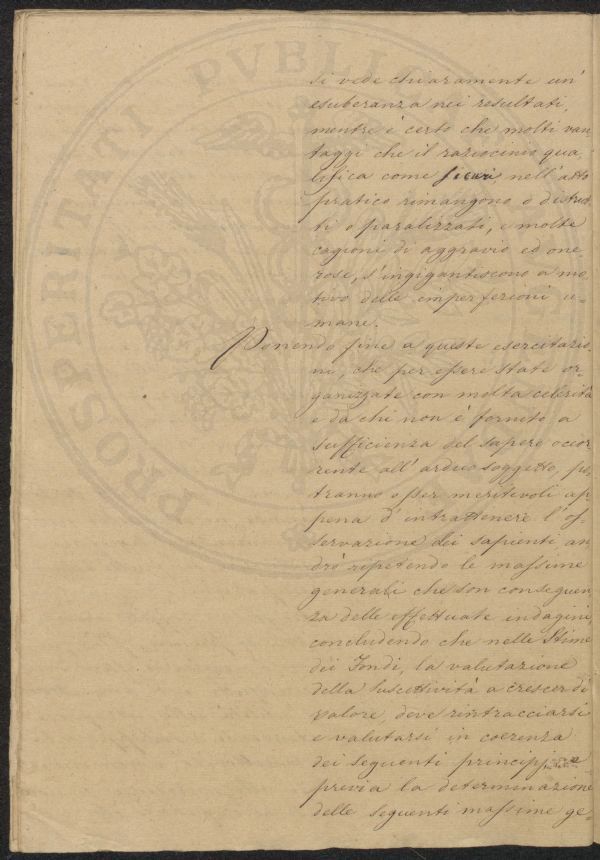 si vede chiaramente un'
esuberanza nei resultati,
mentre è certo che molti van
taggi che il raziocinio qua,
lifica come sicuri, nell'atto
pratico rimangono o distrut
ti o paralizzati, e molte
cagioni di aggravio ed one,
rose, s'ingigantiscono a mo
tivo delle imperfezioni u-
mane.
Ponendo fine a queste esercitazio,
ni, che per essere state or-
ganizzate con molta celerità
e da chi non è fornito a
sufficienza del sapere occor,
rente all'arduo soggetto, po,
tranno esser meritevoli ap
pena d'intrattenere l'os-
servazione dei sapienti, an
drò repetendo le massime
generali che son conseguen
za delle effettuate indagini,
concludendo che nelle Stime
dei Fondi, la valutazione
della suscettività a crescer di
valore, deve rintracciarsi
e valutarsi in coerenza
dei seguenti principj
previa la determinazione
delle seguenti massime ge-
PROSPERITATI PVBLIC